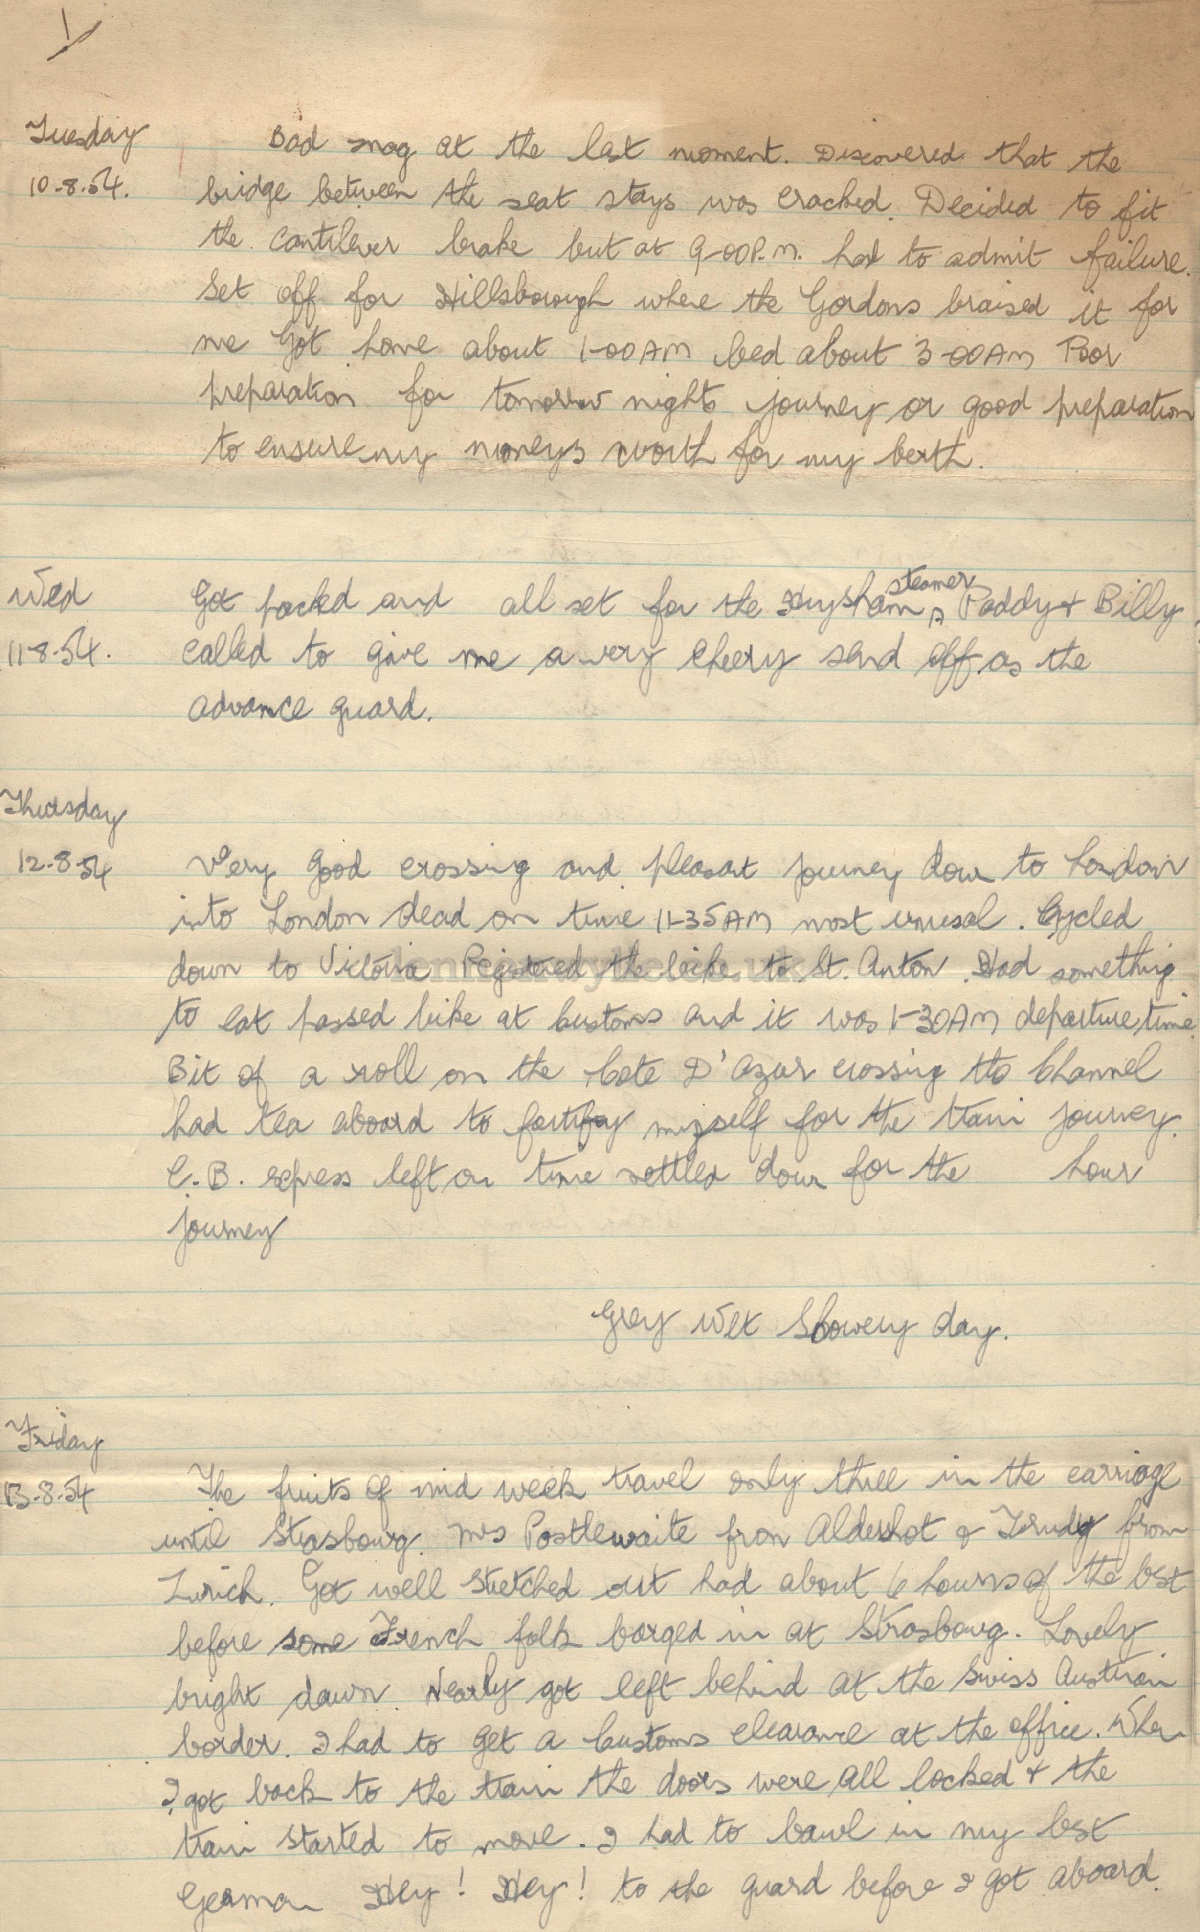 1
Tuesday
10-8-54.
Bad snag at the last moment. Discovered that the
bridge between the seat stays was cracked. Decided to fit
the cantilever brake but at 9-00P.M. had to admit failure.
Set off for Hillsborough where the Gordons braised it for
me Got home about 1-00AM bed about 3-00AM Poor
preparation for tomorrow nights journey or good preparation
to ensure my moneys worth for my berth.
Wed
11-8-54.
Got packed and all set for the Heysham steamer, Paddy & Billy
called to give me a very cheery send off as the
advance guard.
Thursday
12-8-54
Very good crossing and pleasant journey down to London
into London dead on time 11-35AM most unusal. Cycled
down to Victoria Registered the bike to St. Anton. Had something
to eat passed bike at Customs and it was 1-30AM departure time.
Bit of a roll on the Cote D'Azur crossing the Channel
had tea aboard to fortify myself for the train journey.
C.B. express left on time settled down for the hour
journey
Grey Wet Showery day.
Friday
13-8-54
The fruits of mid week travel only three in the carriage
until Strasbourg. Mrs Postlewaite from Aldershot & Trudy from
Zurich. Got well stretched out had about 6 hours of the best
before some French folk barged in at Strasbourg. Lovely
bright dawn. Nearly got left behind at the Swiss Austrian
border. I had to get a Customs clearance at the office. When
I got back to the train the doors were all locked & the
train started to move. I had to bawl in my best
German Hey! Hey! to the guard before I got aboard.